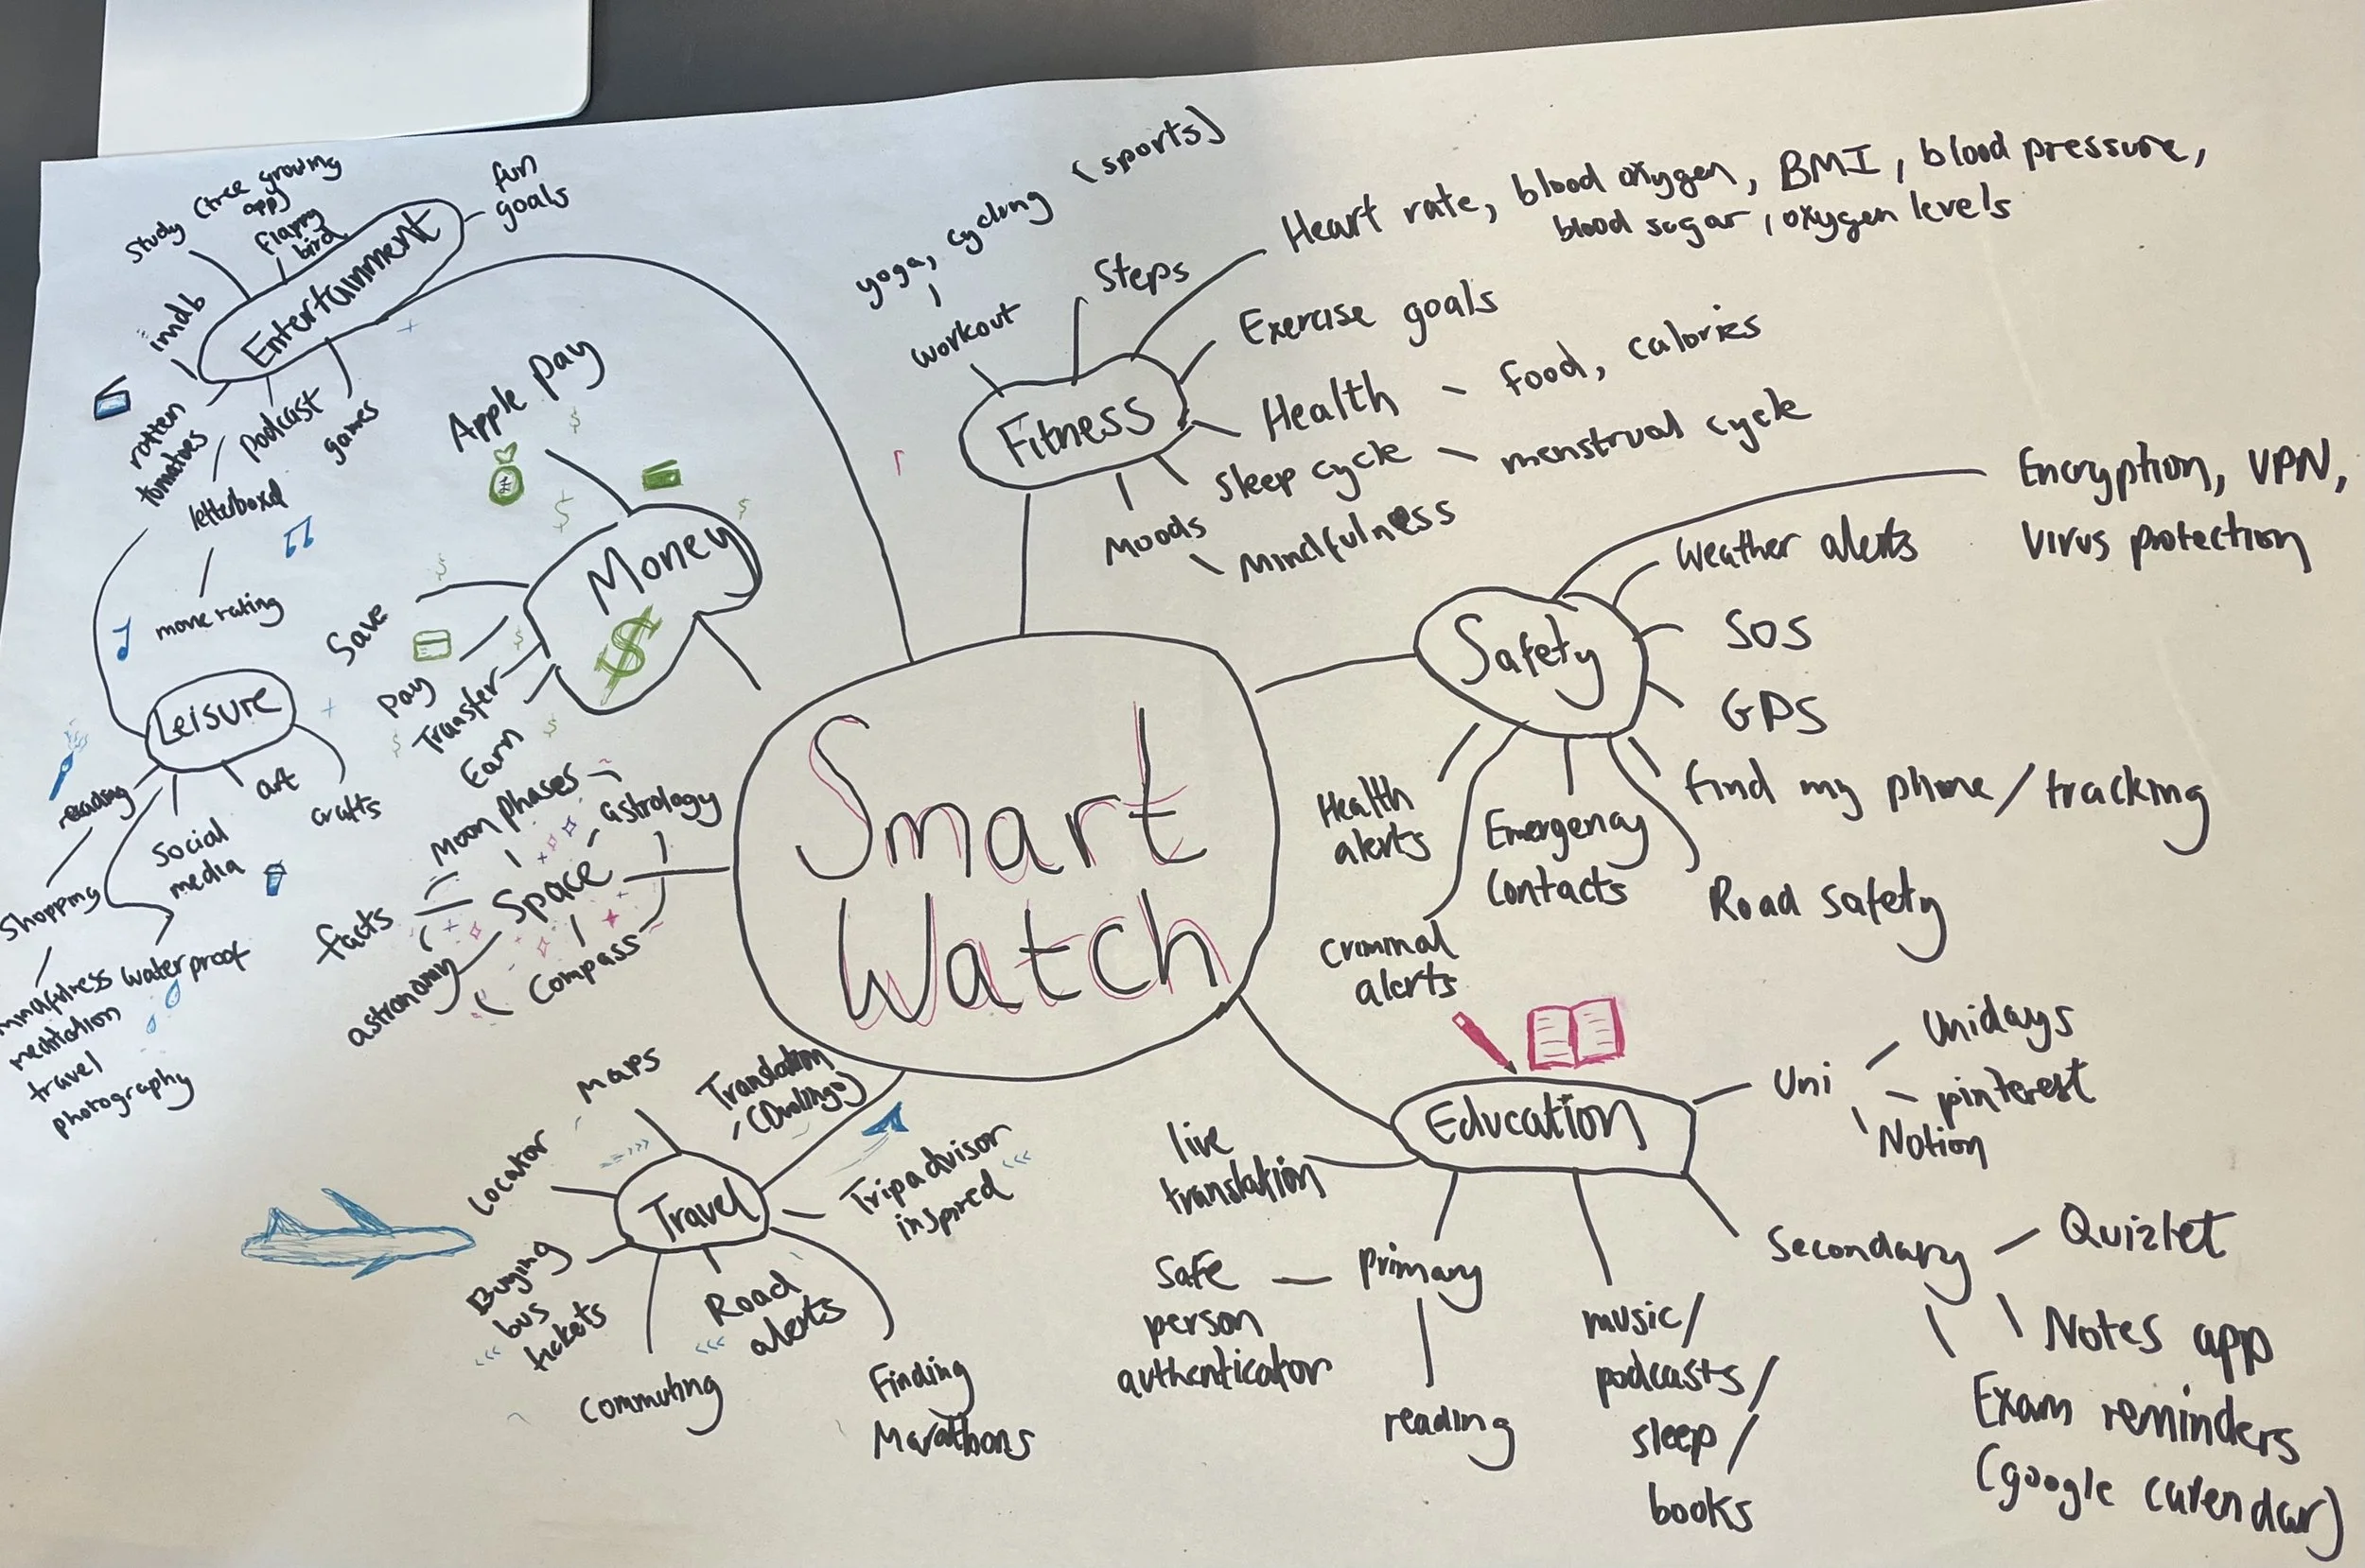 Smart
Watch
Entertainment
Study (tree growing
app)
flappy
bird
fun
goals
imdb
rotten
tomatoes
podcast
games
letterboxd
movie rating
Leisure
reading
art
crafts
social
media
shopping
waterproof
mindfulness
meditation
travel
photography
Money
$
Apple Pay
Save
pay
Transfer
Earn
Space
Moon phases
astrology
facts
astronomy
Compass
Travel
maps
Translation
(Duolingo)
Locator
Tripadvisor
inspired
Buying
bus
tickets
Commuting
Road
alerts
Finding
Marathons
Fitness
yoga, cycling (sports)
workout
Steps
Heart rate, blood oxygen, BMI, blood pressure,
blood sugar, oxygen levels
Exercise goals
Health - food, calories
Sleep cycle - menstrual cycle
Moods
Mindfulness
Safety
Encryption, VPN,
Virus protection
Weather alerts
SOS
GPS
find my phone / tracking
Road safety
Emergency
Contacts
Health
alerts
Criminal
alerts
Education
Uni
Unidays
pinterest
Notion
live
translation
primary
Safe
person
authenticator
reading
music/
podcasts/
sleep/
books
Secondary
Quizlet
Notes app
Exam reminders
(google calendar)